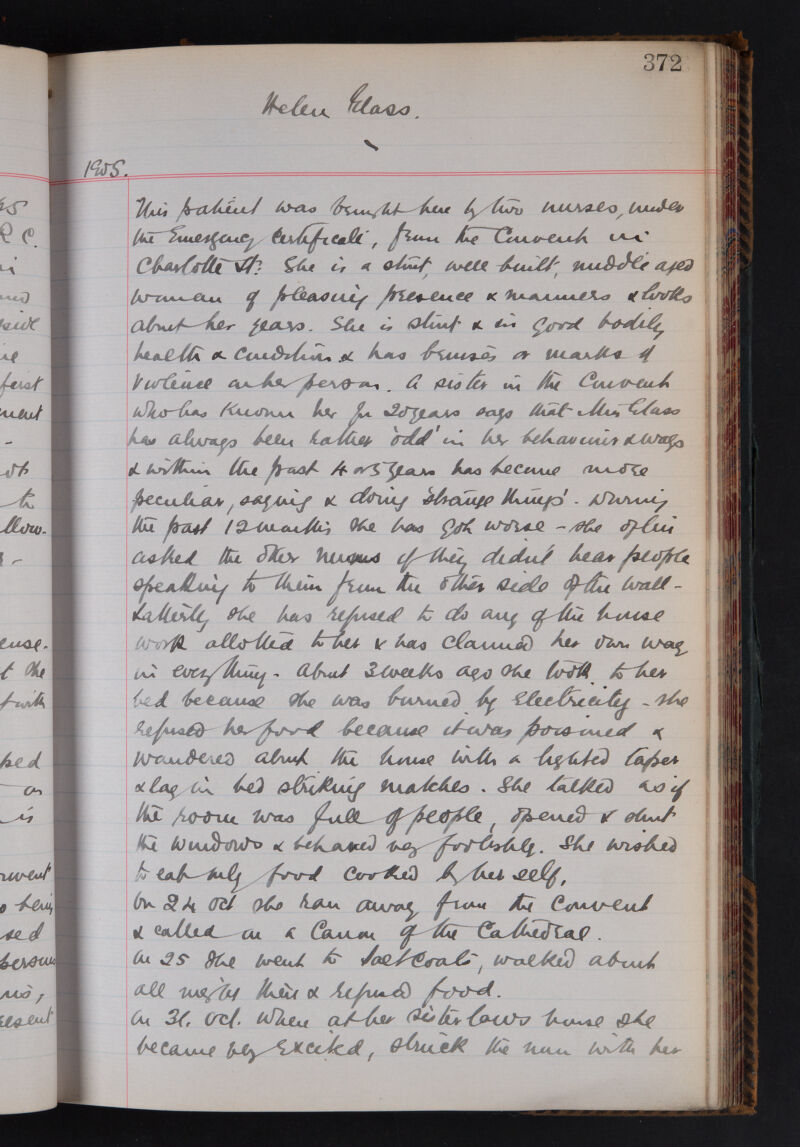 372
Helen Glass.
1905.
This patient was brought here by two nurses, under
the Emergency Certificate, from the Convent in
Charlotte St: She is a stout, well built, middle aged
woman of pleasing presence & manners & looks
about her years. She is stout & in good bodily
health & condition & has bruises or marks of
violence on her person. A sister in the Convent
who has known her for 20 years says that Mrs Glass
has always been rather 'odd' in her behaviour & ways
& within the past 4 or 5 years has become more
peculiar, saying & doing 'strange things'. During
the past 12 months she has got worse - she often
asked the other nuns if they didn't hear people
speaking to them from the other side of the wall -
Latterly she has refused to do any of the house
work allotted to her & has claimed her own way
in everything. About 3 weeks ago she took to her
bed because she was burned by electricity - she
refused her food because it was poisoned &
wandered about the house with a lighted taper
& lay in bed striking matches. She talked as if
the room was full of people, opened & shut
the windows & behaved very foolishly. She wished
to eat only food cooked by her self.
On 24 Oct she ran away from the Convent
& called on a Canon of the Cathedral.
On 25 she went to Saltcoats, walked about
all night there & refused food.
On 31. Oct. when at her sister laws house she
became very excited, struck the nun with her
25
R C.
in
side
first
ment
-
to
allow-
ense.
t she
t with
ped
on
is
nvent
o being
sed
persons
resent